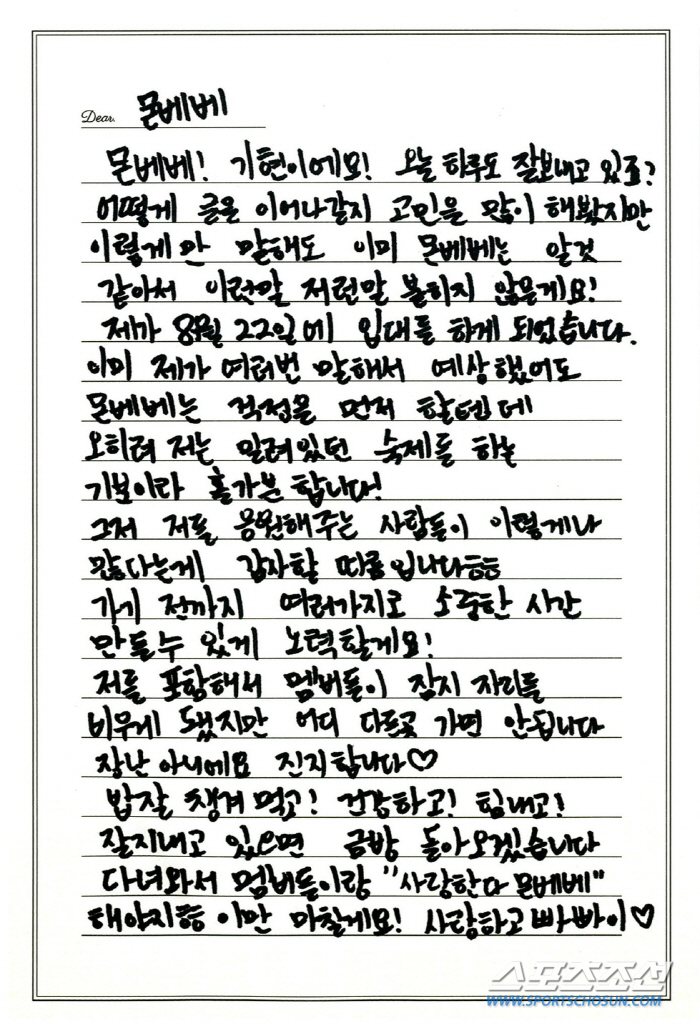 Dear. 몬베베
몬베베! 기현이에요! 오늘 하루도 잘보내고 있죠?
어떻게 글을 이어나갈지 고민을 많이 해봤지만
이렇게만 말해도 이미 몬베베는 알것
같아서 이런말 저런말 붙히지 않을게요!
제가 8월 22일에 입대를 하게 되었습니다.
이미 제가 여러번 말해서 예상했어도
몬베베는 걱정을 먼저 할텐데
오히려 저는 밀려있던 숙제를 하는
기분이라 홀가분 합니다!
그저 저를 응원해주는 사람들이 이렇게나
많다는게 감사할 따름입니다ㅎㅎ
가기 전까지 여러가지로 소중한 시간
만들수 있게 노력할게요!
저를 포함해서 멤버들이 잠시 자리를
비우게 됐지만 어디 다른곳 가면 안됩니다
장난 아니에요 진지합니다♡
밥잘 챙겨 먹고! 건강하고! 힘내고!
잘지내고 있으면 금방 돌아오겠습니다
다녀와서 멤버들이랑 "사랑한다 몬베베"
해야지ㅎㅎ 이만 마칠게요! 사랑하고 빠빠이♡
스포츠조선
WWW.SPORTSCHOSUN.COM